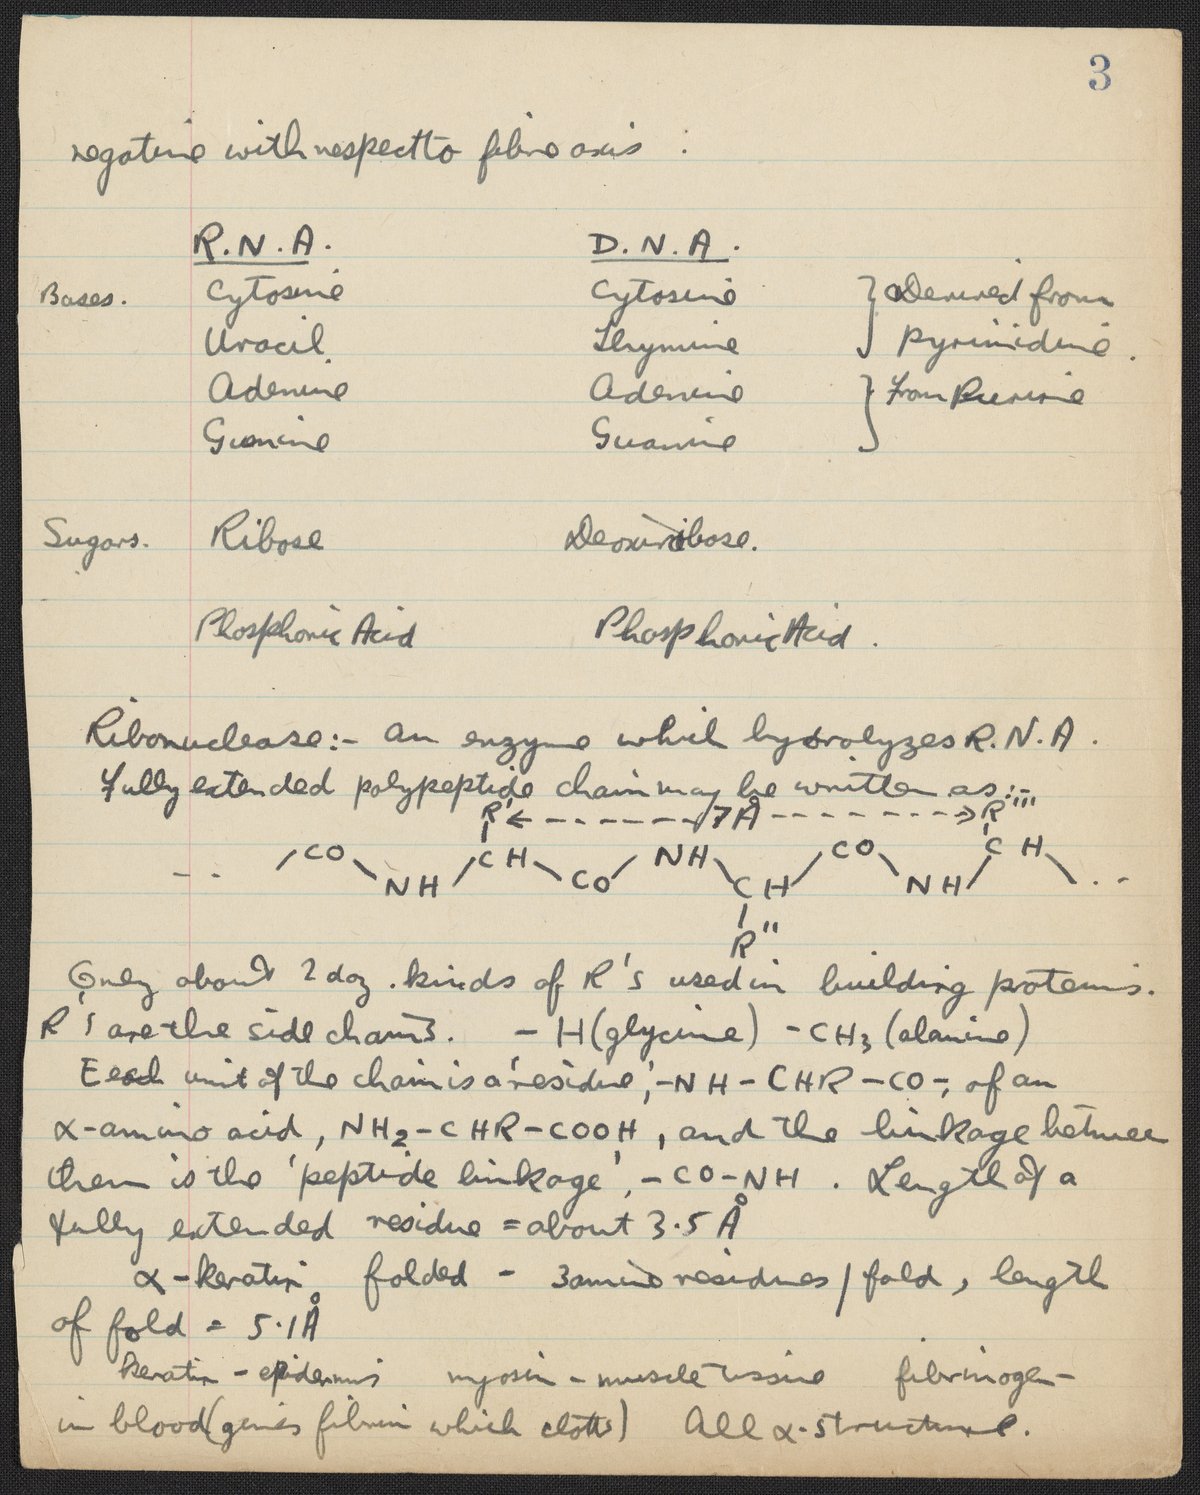 3
negative with respect to fibre axis :
R.N.A. D.N.A.
Bases. Cytosine Cytosine } Derived from
Uracil Thymine pyrimidine.
Adenine Adenine } from Purine
Guanine Guanine
Sugars. Ribose Deoxiribose.
Phosphoric Acid Phosphoric Acid.
Ribonuclease:- an enzyme which hydrolyzes R.N.A.
Fully extended polypeptide chain may be written as:-
R' <- - - - - 7Å - - - - - -> R'''
-- / CO \ NH / CH \ CO / NH \ CH / CO \ NH / CH \ . . -
R''
Only about 2 doz. kinds of R's used in building proteins.
R's are the side chains. - H (glycine) - CH3 (alanine)
Each unit of the chain is a 'residue', -NH-CHR-CO-, of an
α-amino acid, NH2-CHR-COOH, and the linkage between
them is the 'peptide linkage', -CO-NH. Length of a
fully extended residue = about 3·5 Å
α-keratin folded - 3 amino residues / fold, length
of fold = 5·1Å
Keratin - epidermis myosin - muscle tissue fibrinogen -
in blood (gives fibrin which clotts) All α-structure.